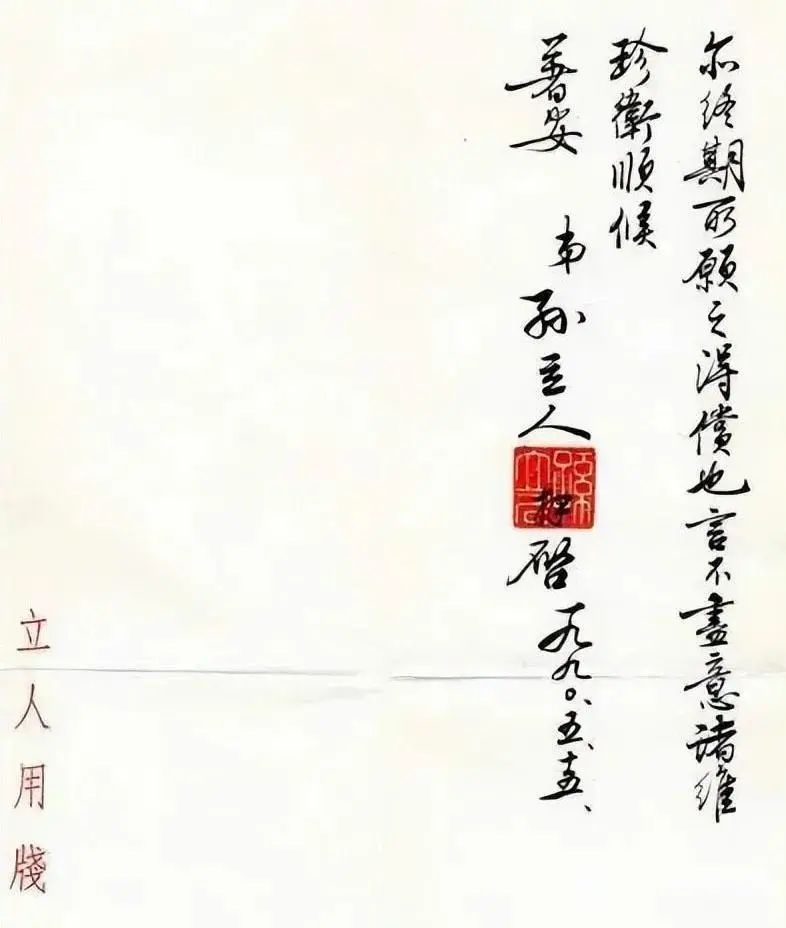 亦終期所願之得償也言不盡意諸維
珍衛順候
著安
弟孫立人拜啓一九九〇、五、十五、
立人用牋